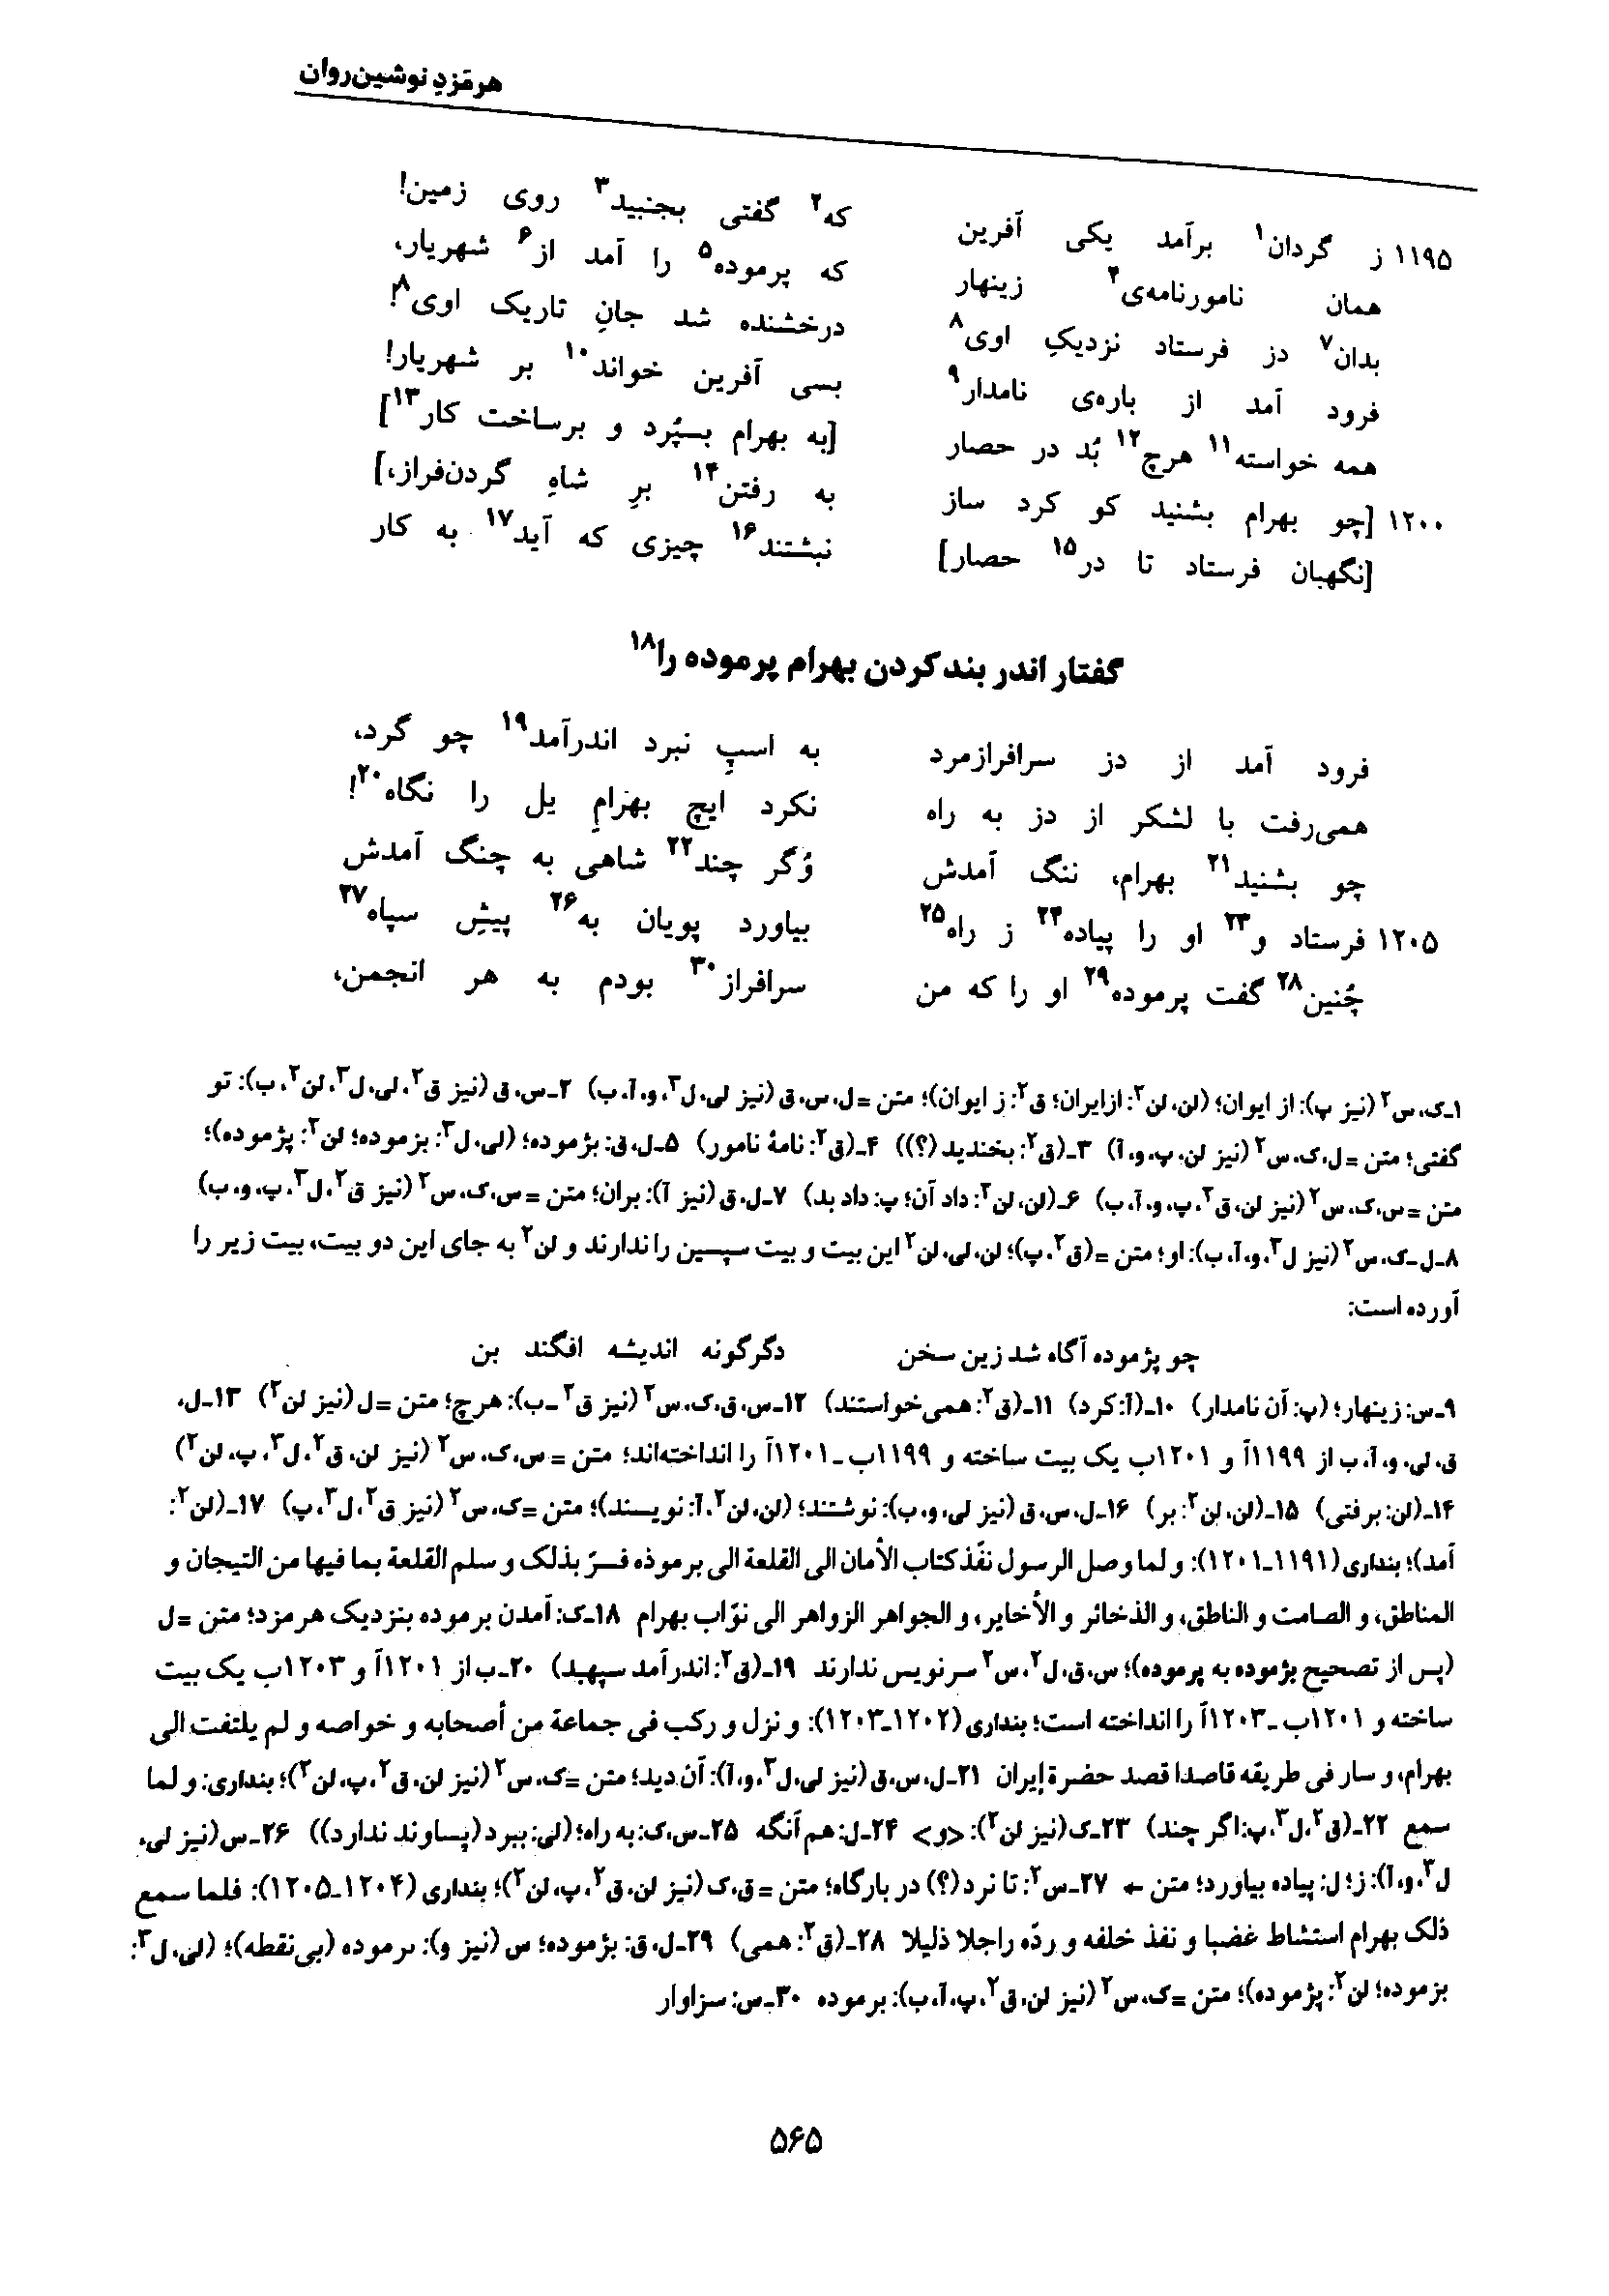 هرمَزدِ نوشین‌روان
۱۱۹۵ ز گردان۱ برآمد یکی آفرین که۲ گفتی بجنبید۳ روی زمین!
همان نامورنامه‌ی۴ زینهار که پرموده۵ را آمد از۶ شهریار،
بدان۷ دز فرستاد نزدیکِ اوی۸ درخشنده شد جانِ تاریک اوی۸!
فرود آمد از باره‌ی نامدار۹ بسی آفرین خواند۱۰ بر شهریار!
همه خواسته۱۱ هرچ۱۲ بُد در حصار [به بهرام بسپُرد و برساخت کار۱۳]
۱۲۰۰ [چو بهرام بشنید کو کرد ساز به رفتن۱۴ برِ شاهِ گردن‌فراز،]
[نگهبان فرستاد تا در۱۵ حصار] نبشتند۱۶ چیزی که آید۱۷ به کار
گفتار اندر بند کردن بهرام پرموده را۱۸
فرود آمد از دز سرافرازمرد به اسپِ نبرد اندرآمد۱۹ چو گرد،
همی‌رفت با لشکر از دز به راه نکرد ایچ بهرامِ یل را نگاه۲۰!
چو بشنید۲۱ بهرام، ننگ آمدش وُگر چند۲۲ شاهی به چنگ آمدش
۱۲۰۵ فرستاد و۲۳ او را پیاده۲۴ ز راه۲۵ بیاورد پویان به۲۶ پیشِ سپاه۲۷
چُنین۲۸ گفت پرموده۲۹ او را که من سرافراز۳۰ بودم به هر انجمن،
۱ـ‌ک، س۲ (نیز پ): از ایوان؛ (لن، لن۲: ازایران؛ ق۲: ز ایوان)؛ متن =ل، س، ق (نیز لی، ل۳، و، آ، ب) ۲ـ‌س، ق (نیز ق۲، لی، ل۳، لن۲، ب): تو
گفتی؛ متن =ل، ک، س۲ (نیز لن، پ، و، آ) ۳ـ(ق۲: بخندید (؟)) ۴ـ(ق۲: نامهٔ نامور) ۵ـ‌ل، ق: بژموده؛ (لی، ل۳: بزموده؛ لن۲: پژموده)؛
متن =س، ک، س۲ (نیز لن، ق۲، پ، و، آ، ب) ۶ـ(لن، لن۲: داد آن؛ پ: داد بد) ۷ـ‌ل، ق (نیز آ): بران؛ متن =س، ک، س۲ (نیز ق۲، ل۳، پ، و، ب)
۸ـ‌ل‌ـ‌ک، س۲ (نیز ل۳، و، آ، ب): او؛ متن =(ق۲، پ)؛ لن، لی، لن۲ این بیت و بیت سپسین را ندارند و لن۲ به جای این دو بیت، بیت زیر را
آورده است:
چو پژموده آگاه شد زین سخن دگرگونه اندیشه افگند بن
۹ـ‌س: زینهار؛ (پ: آن نامدار) ۱۰ـ(آ: کرد) ۱۱ـ(ق۲: همی خواستند) ۱۲ـ‌س، ق، ک، س۲ (نیز ق۲ ـ‌ب): هرچ؛ متن =ل (نیز لن۲) ۱۳ـ‌ل،
ق، لی، و، آ، ب از ۱۱۹۹آ و ۱۲۰۱ب یک بیت ساخته و ۱۱۹۹ب ـ۱۲۰۱آ را انداخته‌اند؛ متن =س، ک، س۲ (نیز لن، ق۲، ل۳، پ، لن۲)
۱۴ـ(لن: برفتی) ۱۵ـ(لن، لن۲: بر) ۱۶ـ‌ل، س، ق (نیز لی، و، ب): نوشتند؛ (لن، لن۲، آ: نویسند)؛ متن =ک، س۲ (نیز ق۲، ل۳، پ) ۱۷ـ(لن۲:
آمد)؛ بنداری (۱۱۹۱ـ۱۲۰۱): و لما وصل الرسول نفّذ کتاب الأمان الی القلعة الی برموذه فسرّ بذلک و سلم القلعة بما فیها من التیجان و
المناطق، و الصامت و الناطق، و الذخائر و الأخایر، و الجواهر الزواهر الی نوّاب بهرام ۱۸ـ‌ک: آمدن برموده بنزدیک هرمزد؛ متن =ل
(پس از تصحیح بژموده به پرموده)؛ س، ق، ل۲، س۲ سرنویس ندارند ۱۹ـ(ق۲: اندرآمد سپهبد) ۲۰ـ‌ب از ۱۲۰۱آ و ۱۲۰۳ب یک بیت
ساخته و ۱۲۰۱ب ـ۱۲۰۳آ را انداخته است؛ بنداری (۱۲۰۲ـ۱۲۰۳): و نزل و رکب فی جماعة من أصحابه و خواصه و لم یلتفت الی
بهرام، و سار فی طریقه قاصدا قصد حضرة إیران ۲۱ـ‌ل، س، ق (نیز لی، ل۳، و، آ): آن دید؛ متن =ک، س۲ (نیز لن، ق۲، پ، لن۲)؛ بنداری: و لما
سمع ۲۲ـ(ق۲، ل۳، پ: اگر چند) ۲۳ـ‌ک (نیز لن۲): <و> ۲۴ـ‌ل: هم آنگه ۲۵ـ‌س، ک: به راه؛ (لی: ببرد (پساوند ندارد)) ۲۶ـ‌س (نیز لی،
ل۳، و، آ): ز؛ ل: پیاده بیاورد؛ متن ← ۲۷ـ‌س۲: تا نرد (؟) در بارگاه؛ متن =ق، ک (نیز لن، ق۲، پ، لن۲)؛ بنداری (۱۲۰۴ـ۱۲۰۵): فلما سمع
ذلک بهرام استشاط غضبا و نفذ خلفه و ردّه راجلا ذلیلا ۲۸ـ(ق۲: همی) ۲۹ـ‌ل، ق: بژموده؛ س (نیز و): ىرموده (بی‌نقطه)؛ (لی، ل۳:
بزموده؛ لن۲: پژموده)؛ متن =ک، س۲ (نیز لن، ق۲، پ، آ، ب): برموده ۳۰ـ‌س: سزاوار
۵۶۵